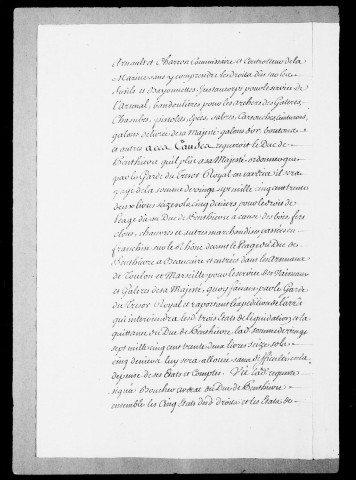 Arnault et Charron Commissaire et Controlleur de la
Marine sans y comprendre les droits dûs sur les
fusils et Bayonnettes, Justaucorps pour le service de
l'arcenal, bandoulieres pour les archers des Galeres,
Chasubes, pistolets, épées, sabres, Cartouches, ceinturons,
galons de livrée de sa Majesté galons d'or boutons
et autres acca Causea requeroit le Duc de
Penthievre qu'il plût a sa Majesté ordonner que
par le Garde du Tresor Royal en exercice il sera
payé de la somme de vingt sept mille cinq cent trente
deux livres seize sols cinq deniers pour le droit de
Peage dû au Duc de Penthievre a cause des bois, fers
clous, chanvres et autres marchandises passées en
franchise sur le Rhône devant le Peage du Duc de
Penthievre a Beaucaire et entrées dans les arcenaux
de Toulon et Marseille pour le service des Vaisseaux
et Galeres de sa Majesté, quoy faisant par le Garde
du Tresor Royal et raportant l'expedition de l'arrêt
qui interviendra les d. trois Etats de liquidation, et la
quittance du Duc de Penthievre lad. somme de vingt
sept mille cinq cent trente deux livres seize sols
cinq deniers luy sera allouée sans difficulté en la
depense de ses Etats et Comptes. Vû lad. requeste
signée Boucher avocat du Duc de Penthievre
ensemble les Cinq Etats desd. droits et les Etats de